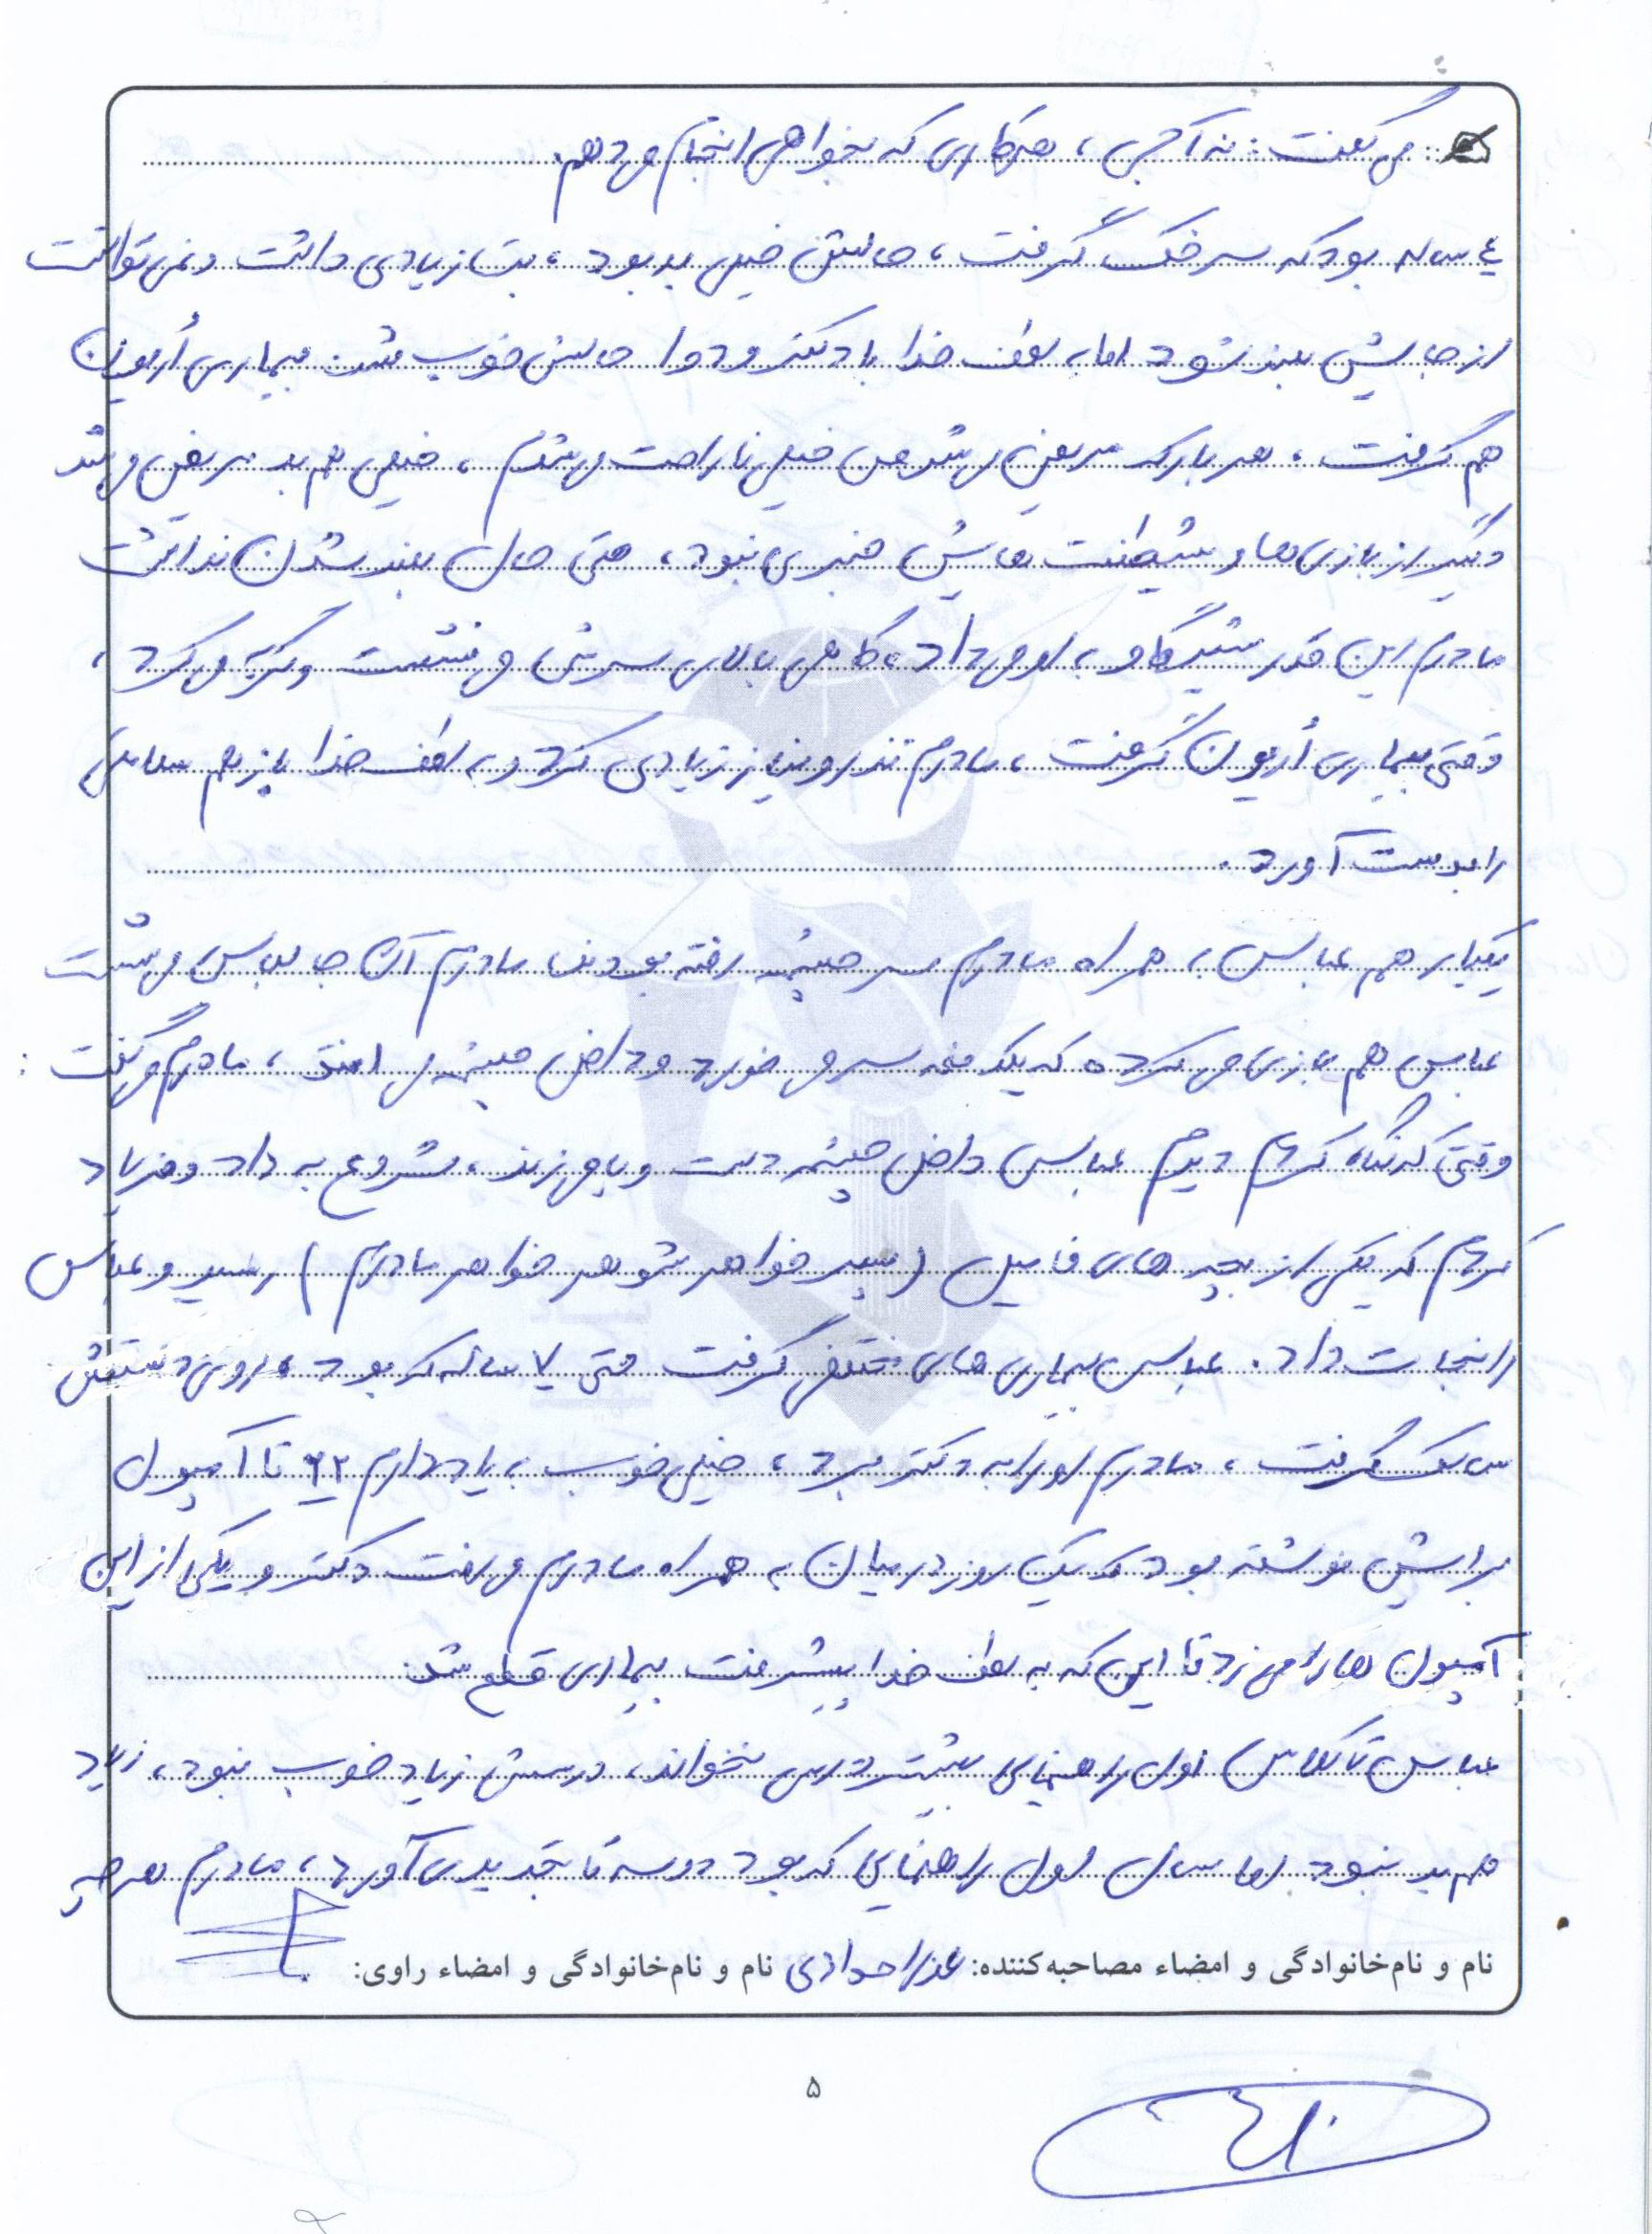 می گفت: نه آجی، هرکاری که بخواهی انجام می دهم.
٤ ساله بود که سرخک گرفت، حالش خیلی بد بود، تب زیادی داشت و نمی توانست
از جایش بلند شود اما به لطف خدا با دکتر و دوا حالش خوب شد. بیماری اُریون
هم گرفت. هر بار که مریض می شد من خیلی ناراحت می شدم، خیلی هم بد مریض می شد
دیگر از بازی ها و شیطنت هایش خبری نبود، حتی حال بلند شدن نداشت
مادرم این قدر شیر گاو به او می داد، گاهی بالای سرش می نشست و گریه می کرد،
وقتی بیماری اُریون گرفت، مادرم نذر و نیاز زیادی کرد و به لطف خدا باز هم سلامتی
را بدست آورد.
یکبار هم عباس به همراه مادرم سر چشمه رفته بودند مادرم آن جا لباس می شست
عباس هم بازی می کرده که یک دفعه سر می خورد و داخل چشمه می افتد، مادرم می گفت:
وقتی که نگاه کردم دیدم عباس داخل چشمه دست و پا می زند، شروع به داد و فریاد
کردم که یکی از بچه های فامیل (پسر خواهر شوهر خواهر مادرم) رسید و عباس
را نجات داد. عباس بیماری های مختلفی گرفت حتی ۷ ساله که بود، روی دستش
سالک گرفت، مادرم او را به دکتر برد، خیلی خوب به یاد دارم ۶۲ تا آمپول
برایش نوشته بود که یک روز در میان به همراه مادرم می رفت دکتر و یکی از این
آمپول ها را می زد تا این که به لطف خدا پیشرفت بیماری قطع شد.
عباس تا کلاس اول راهنمایی بیشتر درس نخواند، درسش زیاد خوب نبود، زیاد
هم بد نبود اما سال اول راهنمایی که بود دو سه تا تجدیدی آورد، مادرم هر چه
نام و نام‌خانوادگی و امضاء مصاحبه‌کننده: عذرا جوادی نام و نام‌خانوادگی و امضاء راوی:
۵